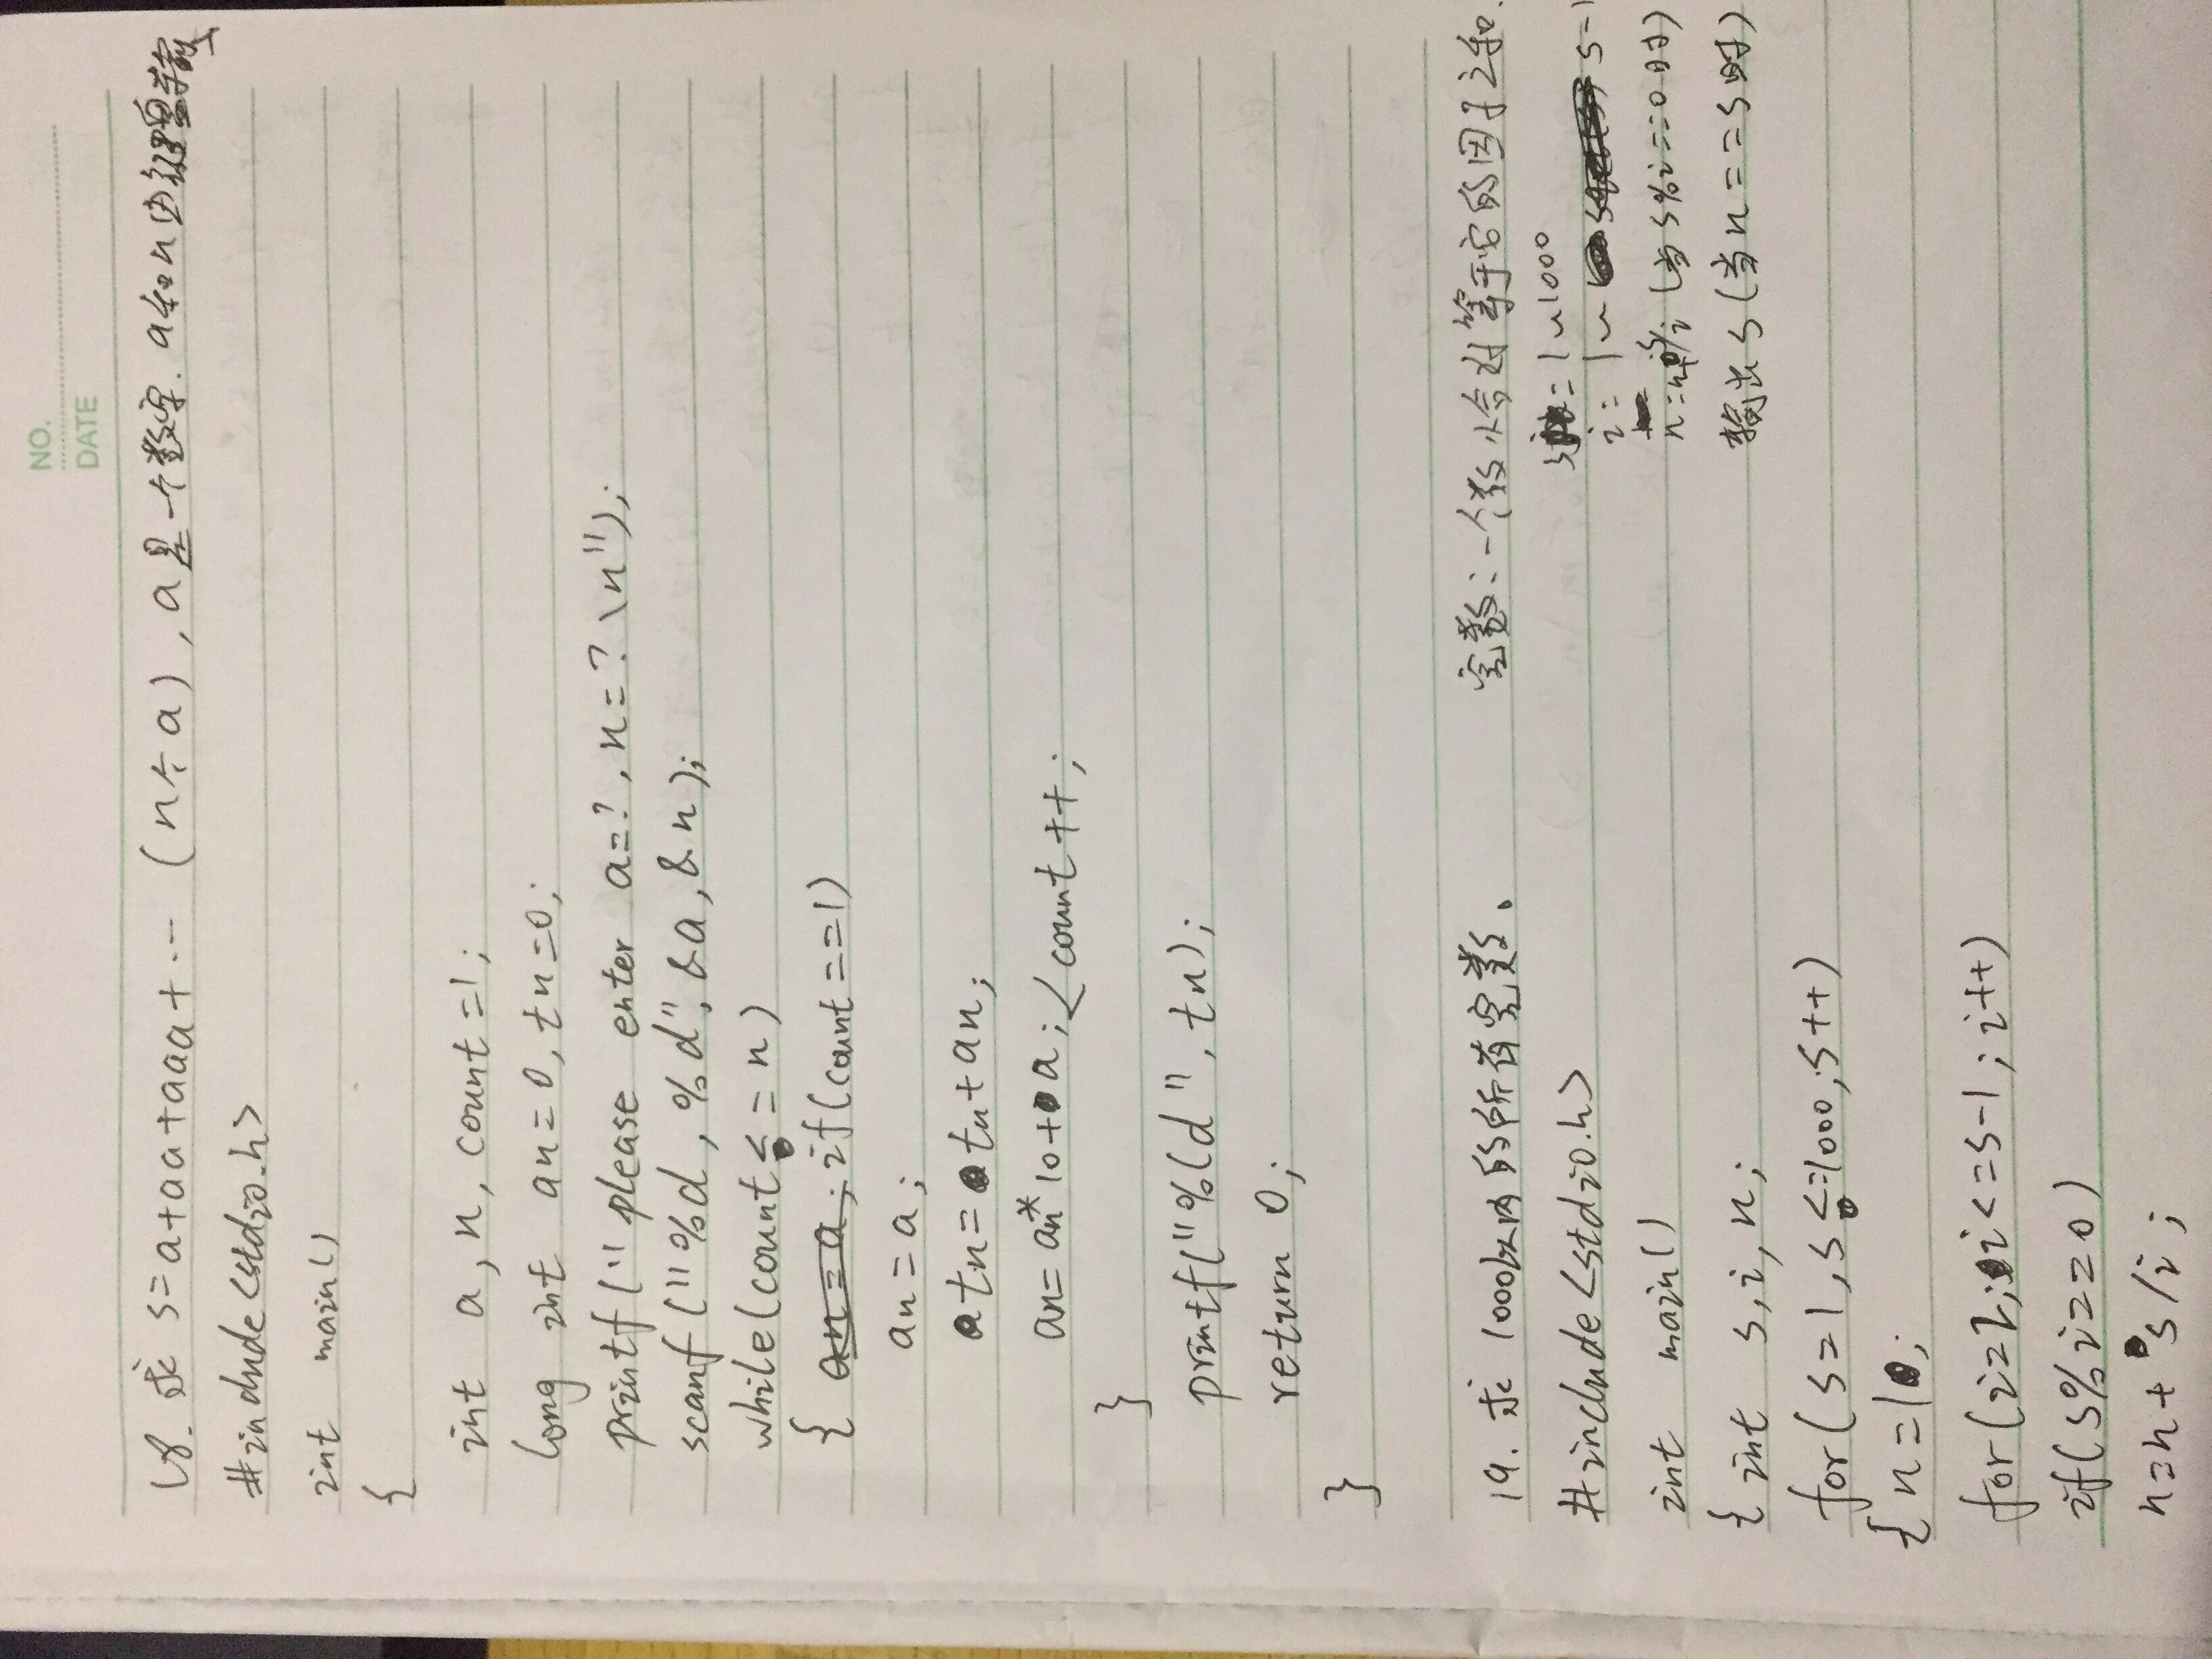 NO.
DATE
18. 求 s=a+aa+aaa+... (n个a), a是一个数字. a和n由键盘输入
#include<stdio.h>
int main()
{
int a, n, count=1;
long int an=0, tn=0;
printf("please enter a=?, n=? \n");
scanf("%d, %d", &a, &n);
while(count<=n)
{ an=a; if(count==1)
an=a;
tn=tn+an;
an=an*10+a; count++;
}
printf("%ld", tn);
return 0;
}
19. 求1000以内的所有完数。 完数:一个数恰好等于它的因子之和.
#include<stdio.h> s=1~1000
int main() i=1~ s-1
{ int s, i, n; n=n+s/i (当s%i==0时)
for(s=1, s<=1000; s++) 输出s(当n==s时)
{ n=1;
for(i=2; i<=s-1; i++)
if(s%i==0)
n=n+s/i;